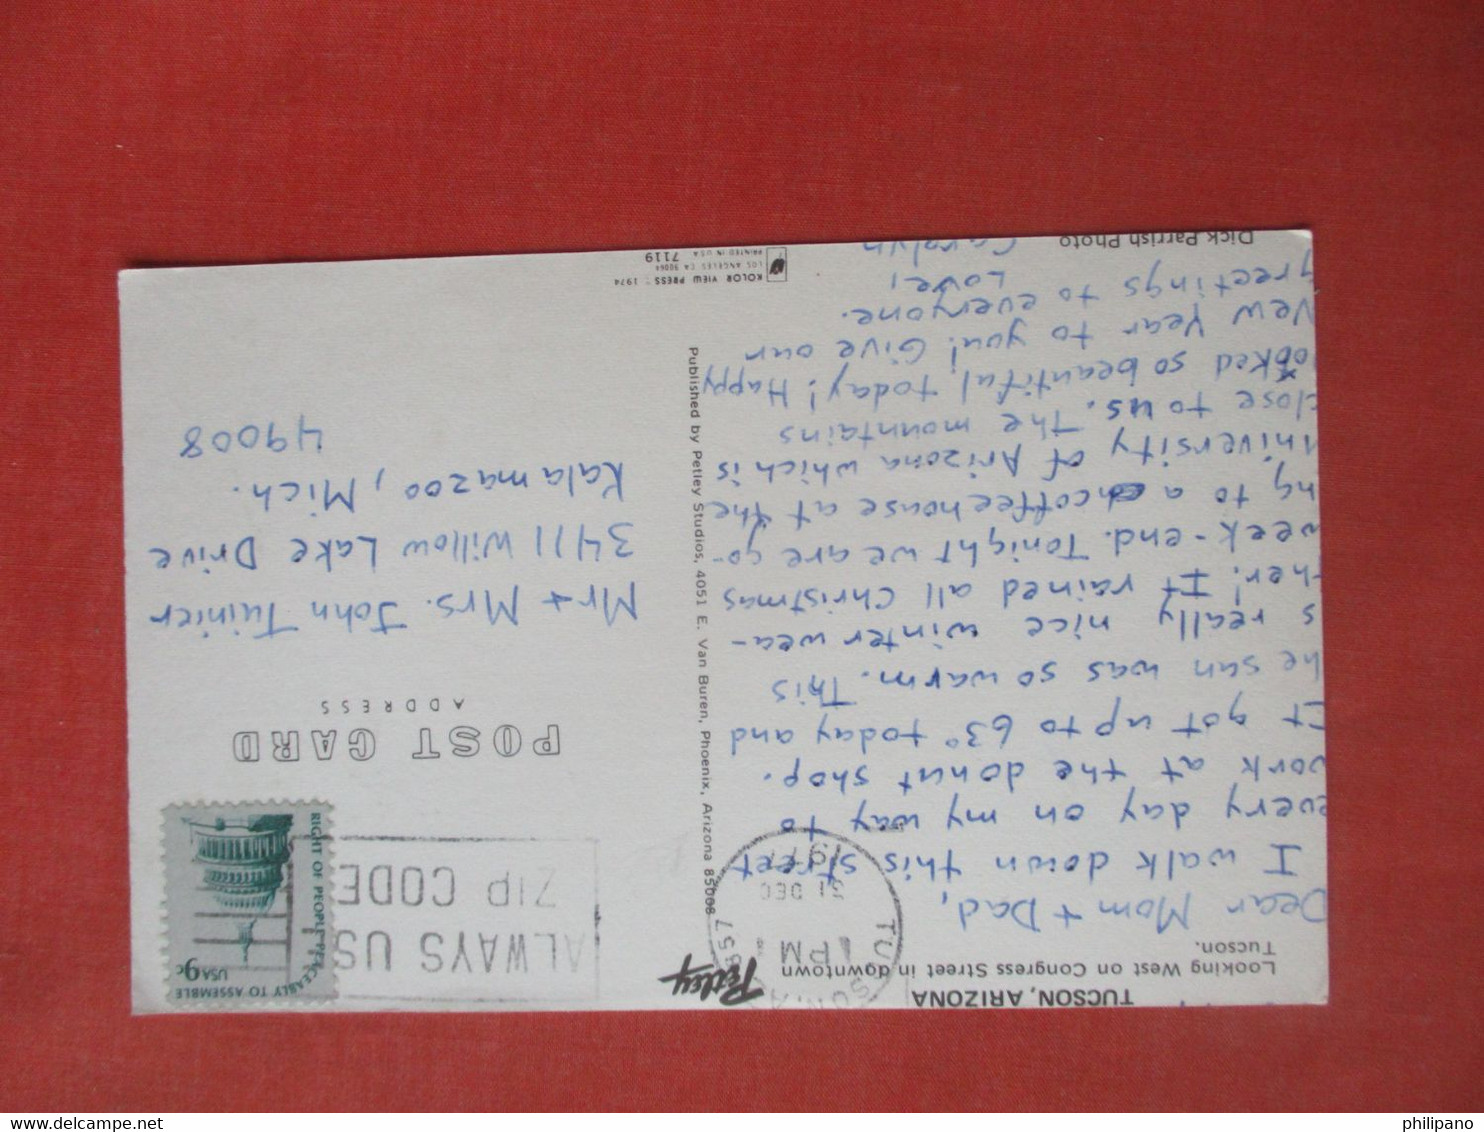 TUCSON, ARIZONA
Looking West on Congress Street in downtown
Tucson.
Dear Mom + Dad,
I walk down this street
every day on my way to
work at the donut shop.
It got up to 63° today and
he sun was so warm. This
s really nice winter wea-
ther! It rained all Christmas
week-end. Tonight we are go-
ng to a coffeehouse at the
University of Arizona which is
close to us. The mountains
looked so beautiful today! Happy
New Year to you! Give our
greetings to everyone.
Love,
Carolyn
Dick Parrish Photo
Petley
Published by Petley Studios, 4051 E. Van Buren, Phoenix, Arizona 85008
KOLOR VIEW PRESS · 1974
LOS ANGELES CA 90064
PRINTED IN USA 7119
TU
PM
31 DEC
1977
857
ALWAYS US
ZIP CODE
RIGHT OF PEOPLE PEACEABLY TO ASSEMBLE
USA 9c
POST CARD
ADDRESS
Mr + Mrs. John Tuinier
3411 Willow Lake Drive
Kalamazoo, Mich.
49008
philipano